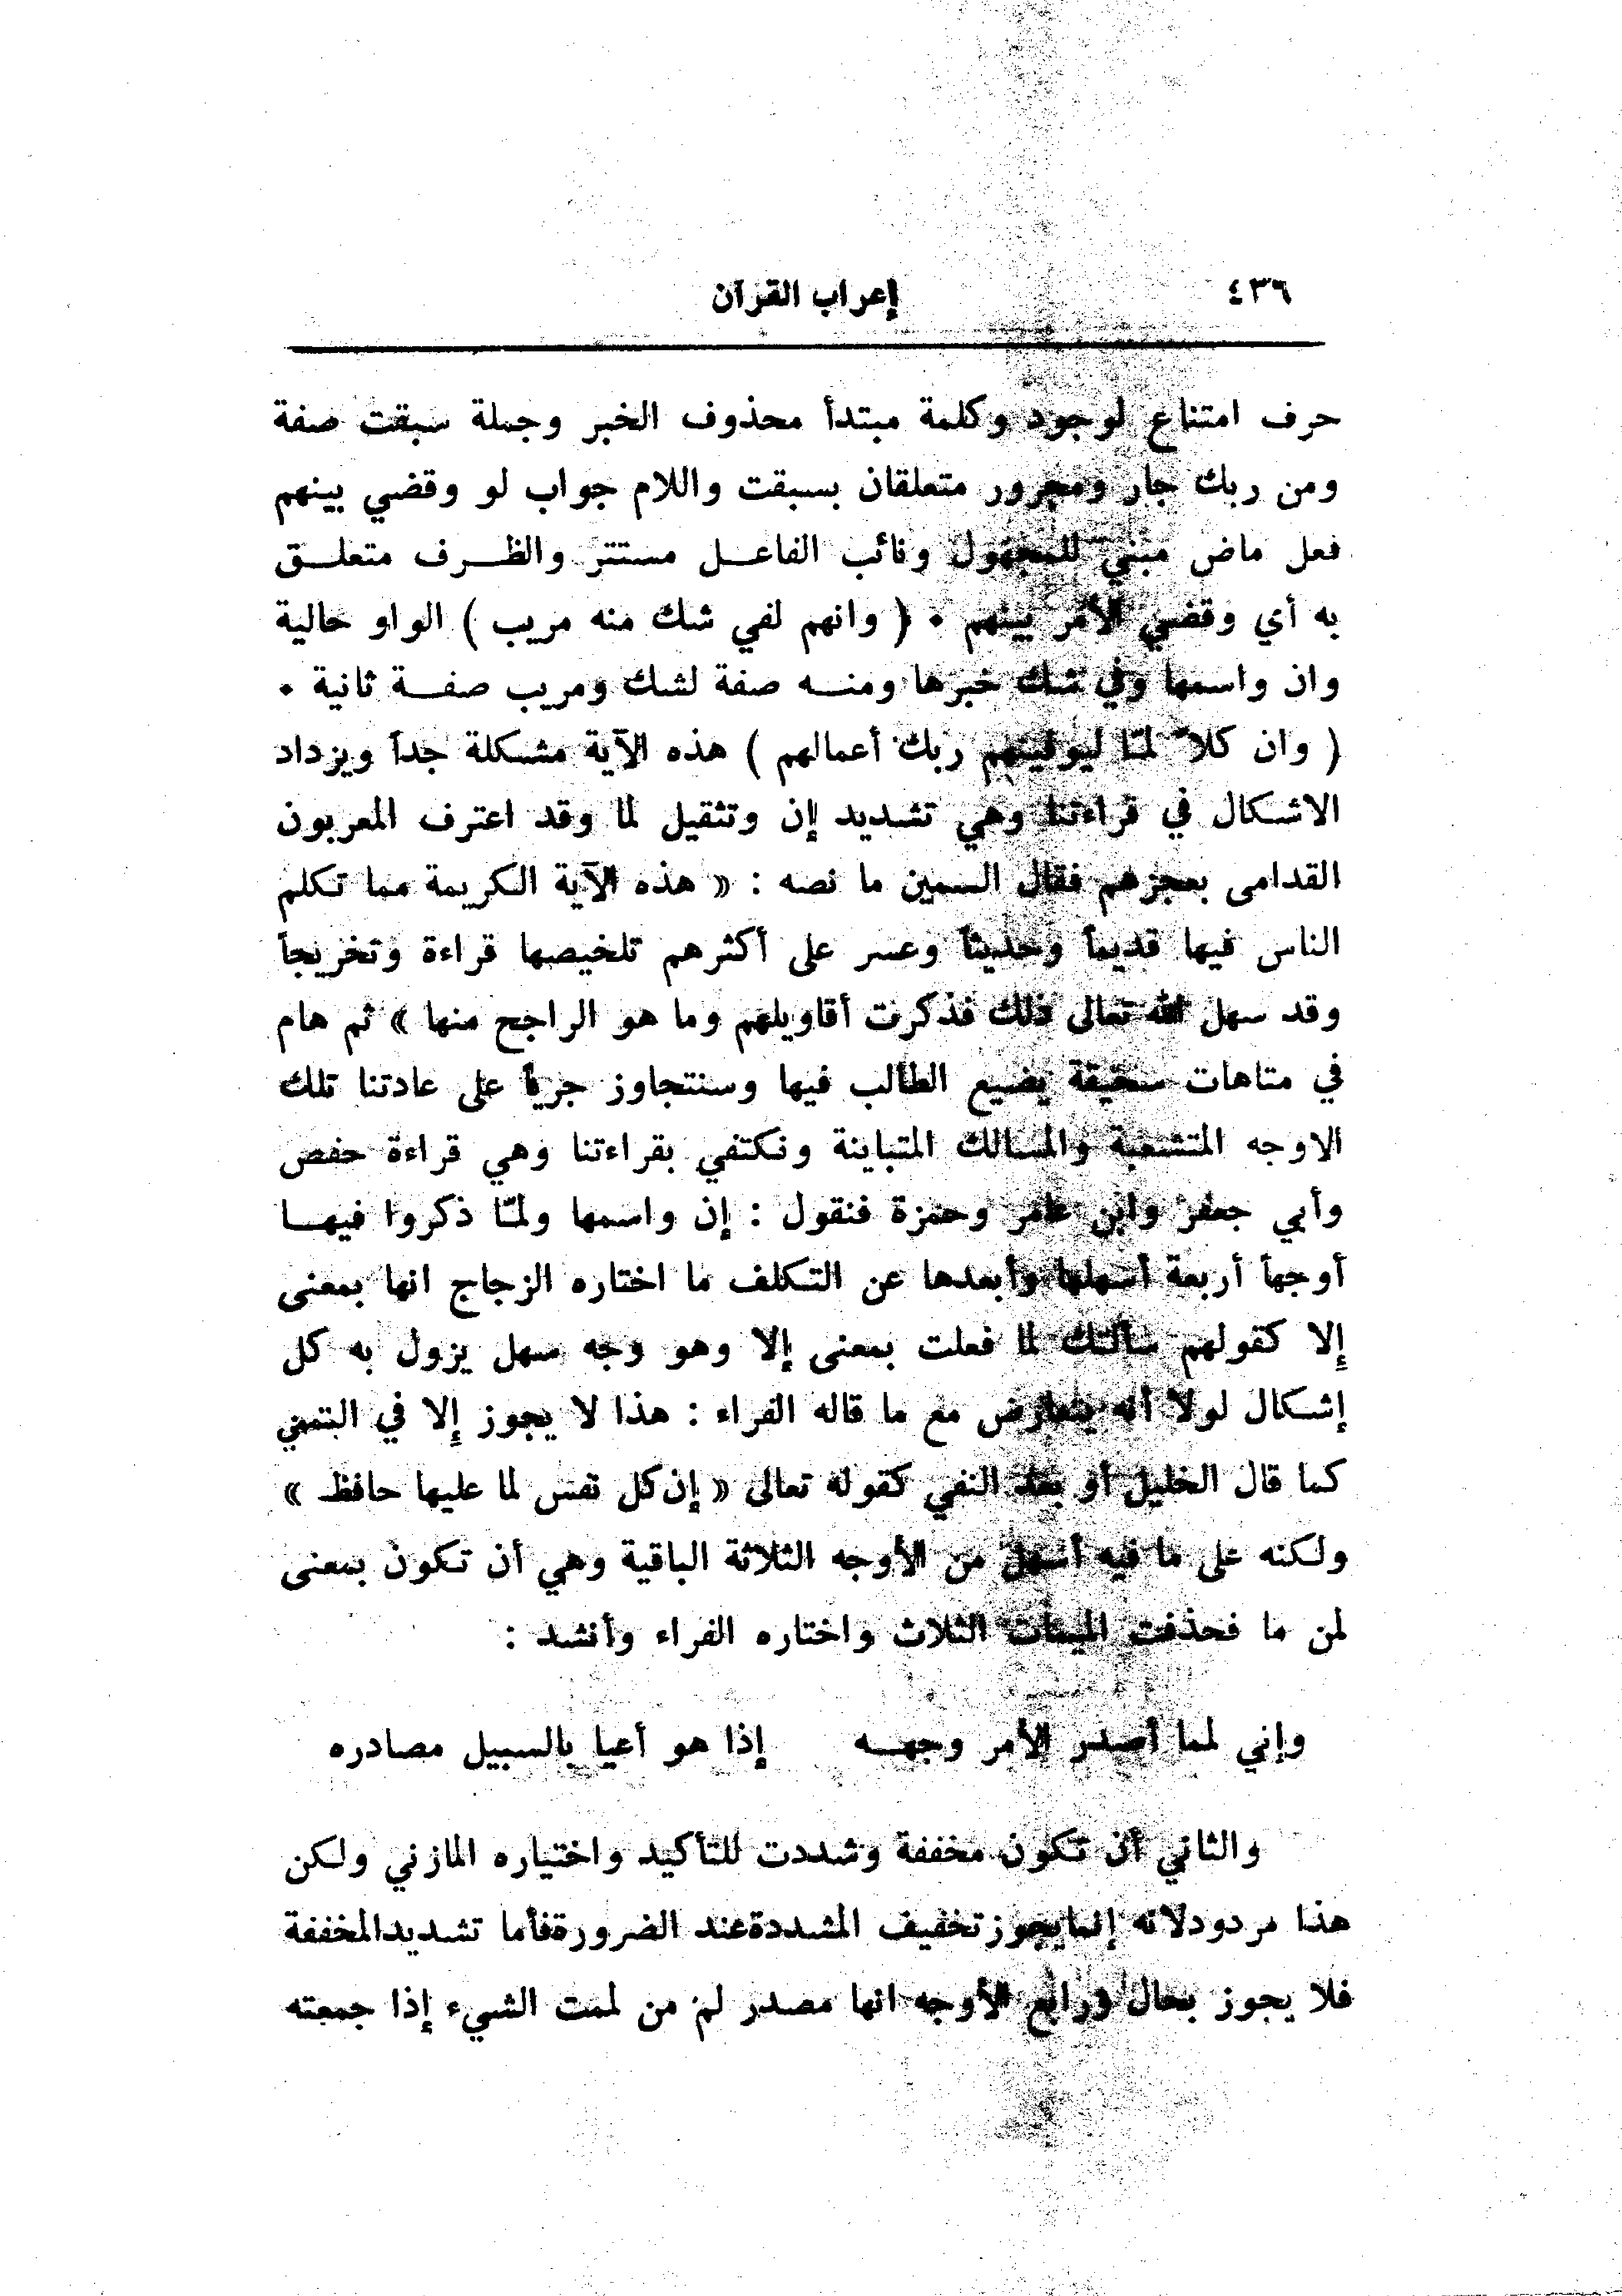 ٤٣٦ إعراب القرآن
حرف امتناع لوجود وكلمة مبتدأ محذوف الخبر وجملة سبقت صفة
ومن ربك جار ومجرور متعلقان بسبقت واللام جواب لو وقضي بينهم
فعل ماض مبني للمجهول ونائب الفاعل مستتر والظرف متعلق
به أي وقضي الأمر بينهم . ( وانهم لفي شك منه مريب ) الواو حالية
وان واسمها وفي شك خبرها ومنه صفة لشك ومريب صفة ثانية .
( وان كلاً لمّا ليوفينهم ربك أعمالهم ) هذه الآية مشكلة جداً ويزداد
الاشكال في قراءتنا وهي تشديد إن وتثقيل لما وقد اعترف المعربون
القدامى بعجزهم فقال السمين ما نصه : « هذه الآية الكريمة مما تكلم
الناس فيها قديماً وحديثاً وعسر على أكثرهم تلخيصها قراءة وتخريجاً
وقد سهل الله تعالى ذلك فذكرت أقاويلهم وما هو الراجح منها » ثم هام
في متاهات سحيقة يضيع الطالب فيها وسنتجاوز جرياً على عادتنا تلك
الاوجه المتشعبة والمسالك المتباينة ونكتفي بقراءتنا وهي قراءة حفص
وأبي جعفر وابن عامر وحمزة فنقول : إن واسمها ولمّا ذكروا فيها
أوجهاً أربعة أسهلها وأبعدها عن التكلف ما اختاره الزجاج انها بمعنى
إلا كقولهم سألتك لما فعلت بمعنى إلا وهو وجه سهل يزول به كل
إشكال لولا أنه يتعارض مع ما قاله الفراء : هذا لا يجوز إلا في التمني
كما قال الخليل أو بعد النفي كقوله تعالى « إن كل نفس لما عليها حافظ »
ولكنه على ما فيه أسهل من الأوجه الثلاثة الباقية وهي أن تكون بمعنى
لمن ما فحذفت الميمات الثلاث واختاره الفراء وأنشد :
وإني لمما أصدر الأمر وجهه إذا هو أعيا بالسبيل مصادره
والثاني أن تكون مخففة وشددت للتأكيد واختياره المازني ولكن
هذا مردود لانه إنما يجوز تخفيف المشددة عند الضرورة فأما تشديد المخففة
فلا يجوز بحال ورابع الأوجه انها مصدر لم من لممت الشيء إذا جمعته